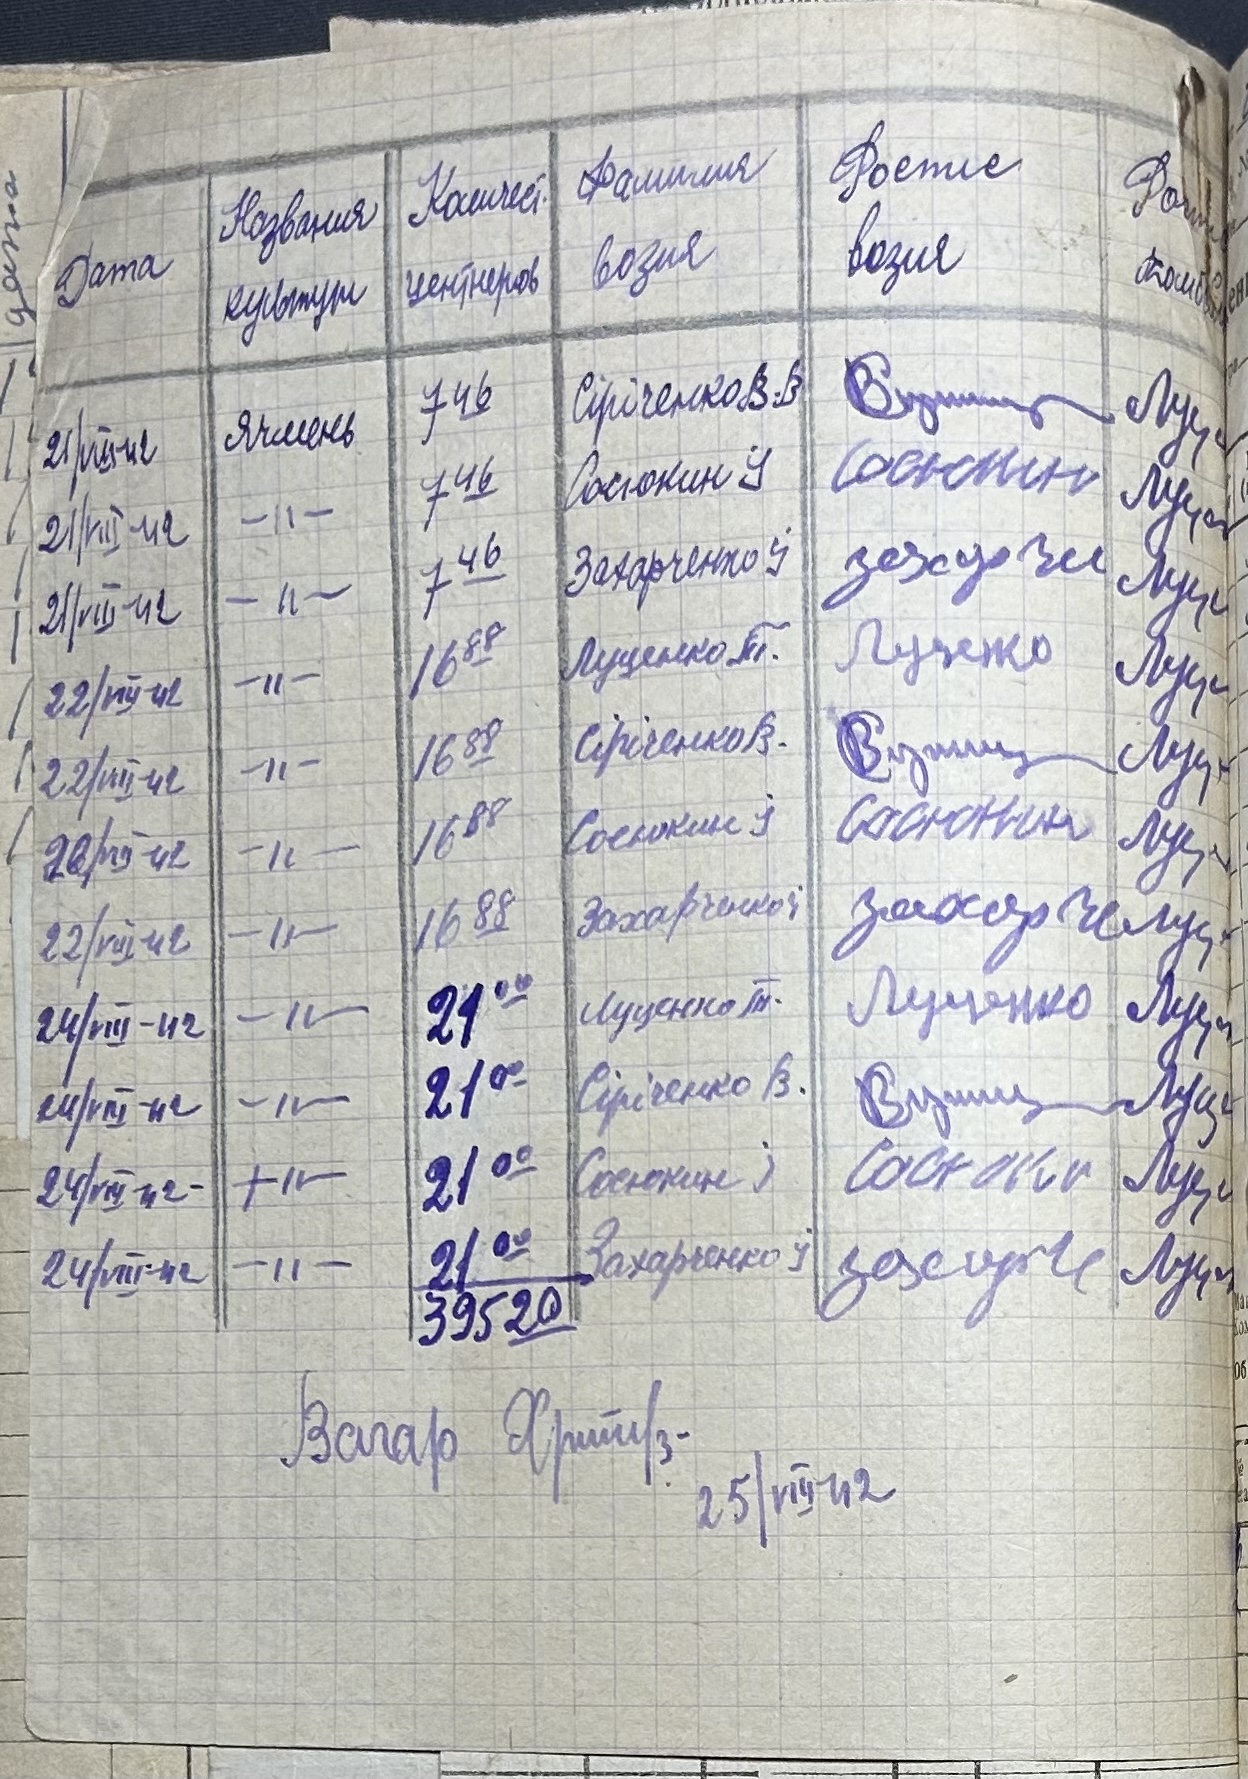 дата
Дата Названия культури Количест. центнеров Фамилия возия Роспис возия Роспис комб
21/VIII-42 Ячмень 7 46 Сіріченко В.В Луц
21/VIII-42 -"- 7 46 Сосюкин У Сосюкин Луц
21/VIII-42 -"- 7 46 Захарченко У захарче Луц
22/VIII-42 -"- 16 88 Луценко Т. Луценко Луц
22/VIII-42 -"- 16 88 Сіріченко В. Луц
22/VIII-42 -"- 16 88 Сосюкин У Сосюкин Луц
22/VIII-42 -"- 16 88 Захарченко У захарче Луц
24/VIII-42 -"- 21 00 Луценко Т. Луценко Луц
24/VIII-42 -"- 21 00 Сіріченко В. Луц
24/VIII-42- -"- 21 00 Сосюкин У Сосюкин Луц
24/VIII-42 -"- 21 00 Захарченко У захарче Луц
395 20
Вагар
25/VIII-42